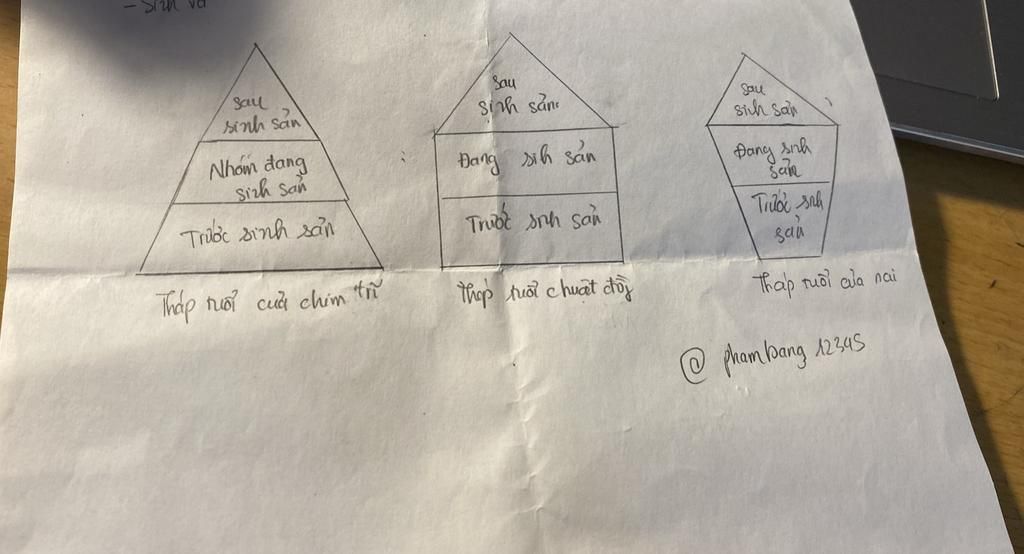 - Sinh vđ
sau
sinh sản
Nhóm đang
sinh sản
Trước sinh sản
Tháp tuổi của chim trĩ
sau
sinh sản
Đang sih sản
Trước snh sản
Tháp tuổi chuột đồg
sau
sinh sản
Đang snh
sản
Trước snh
sản
Tháp tuổi của nai
@ phambang 12345